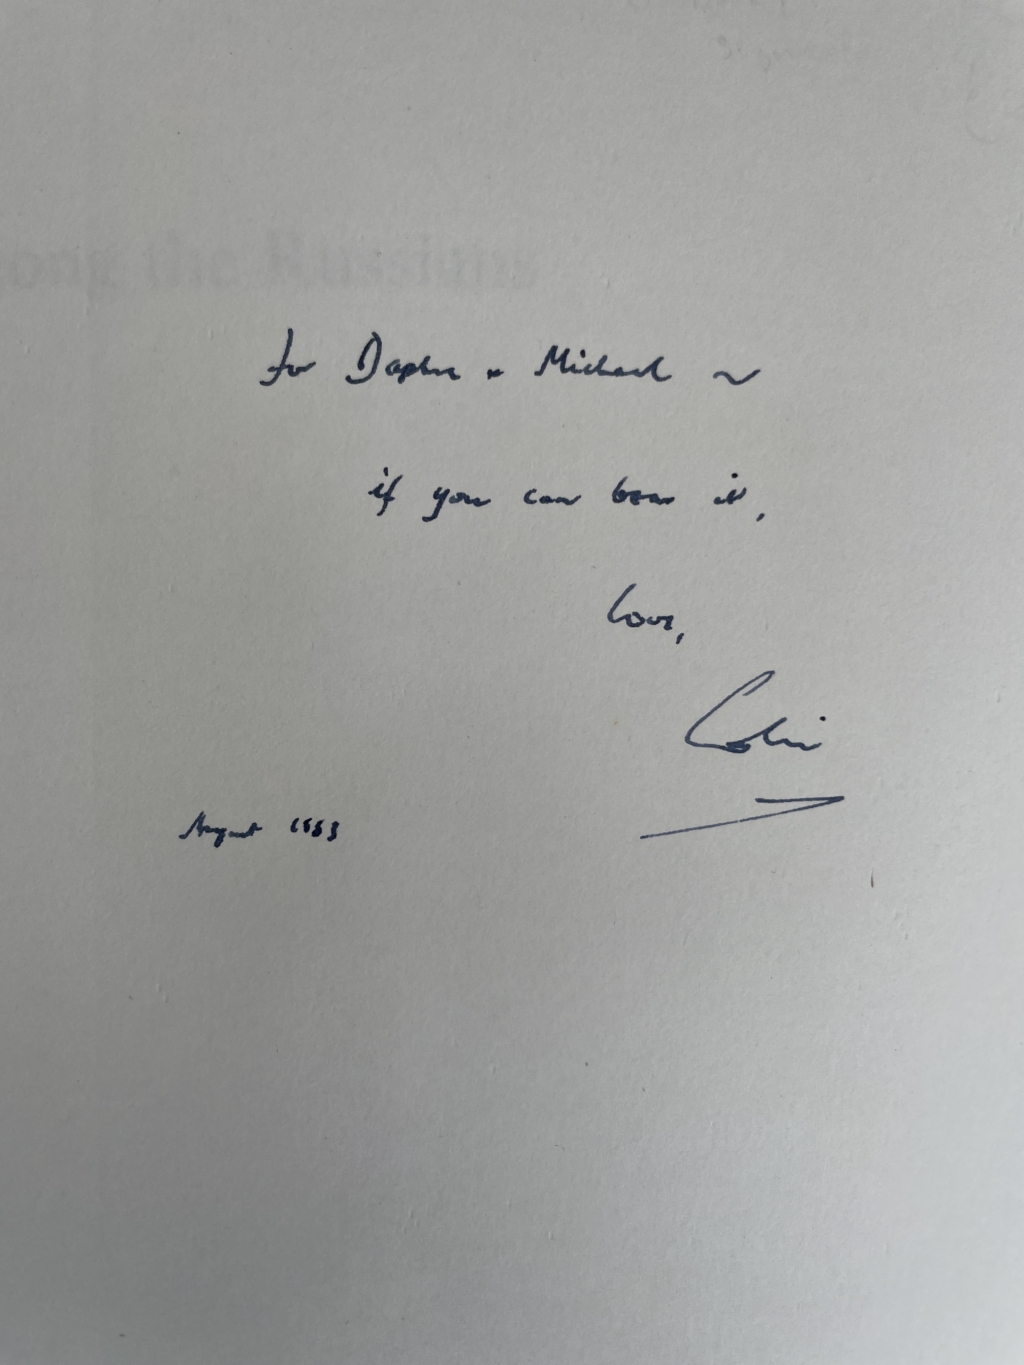 ong the Russians
for Daphne & Michael ~
if you can bear it,
love,
Colin
August 1983